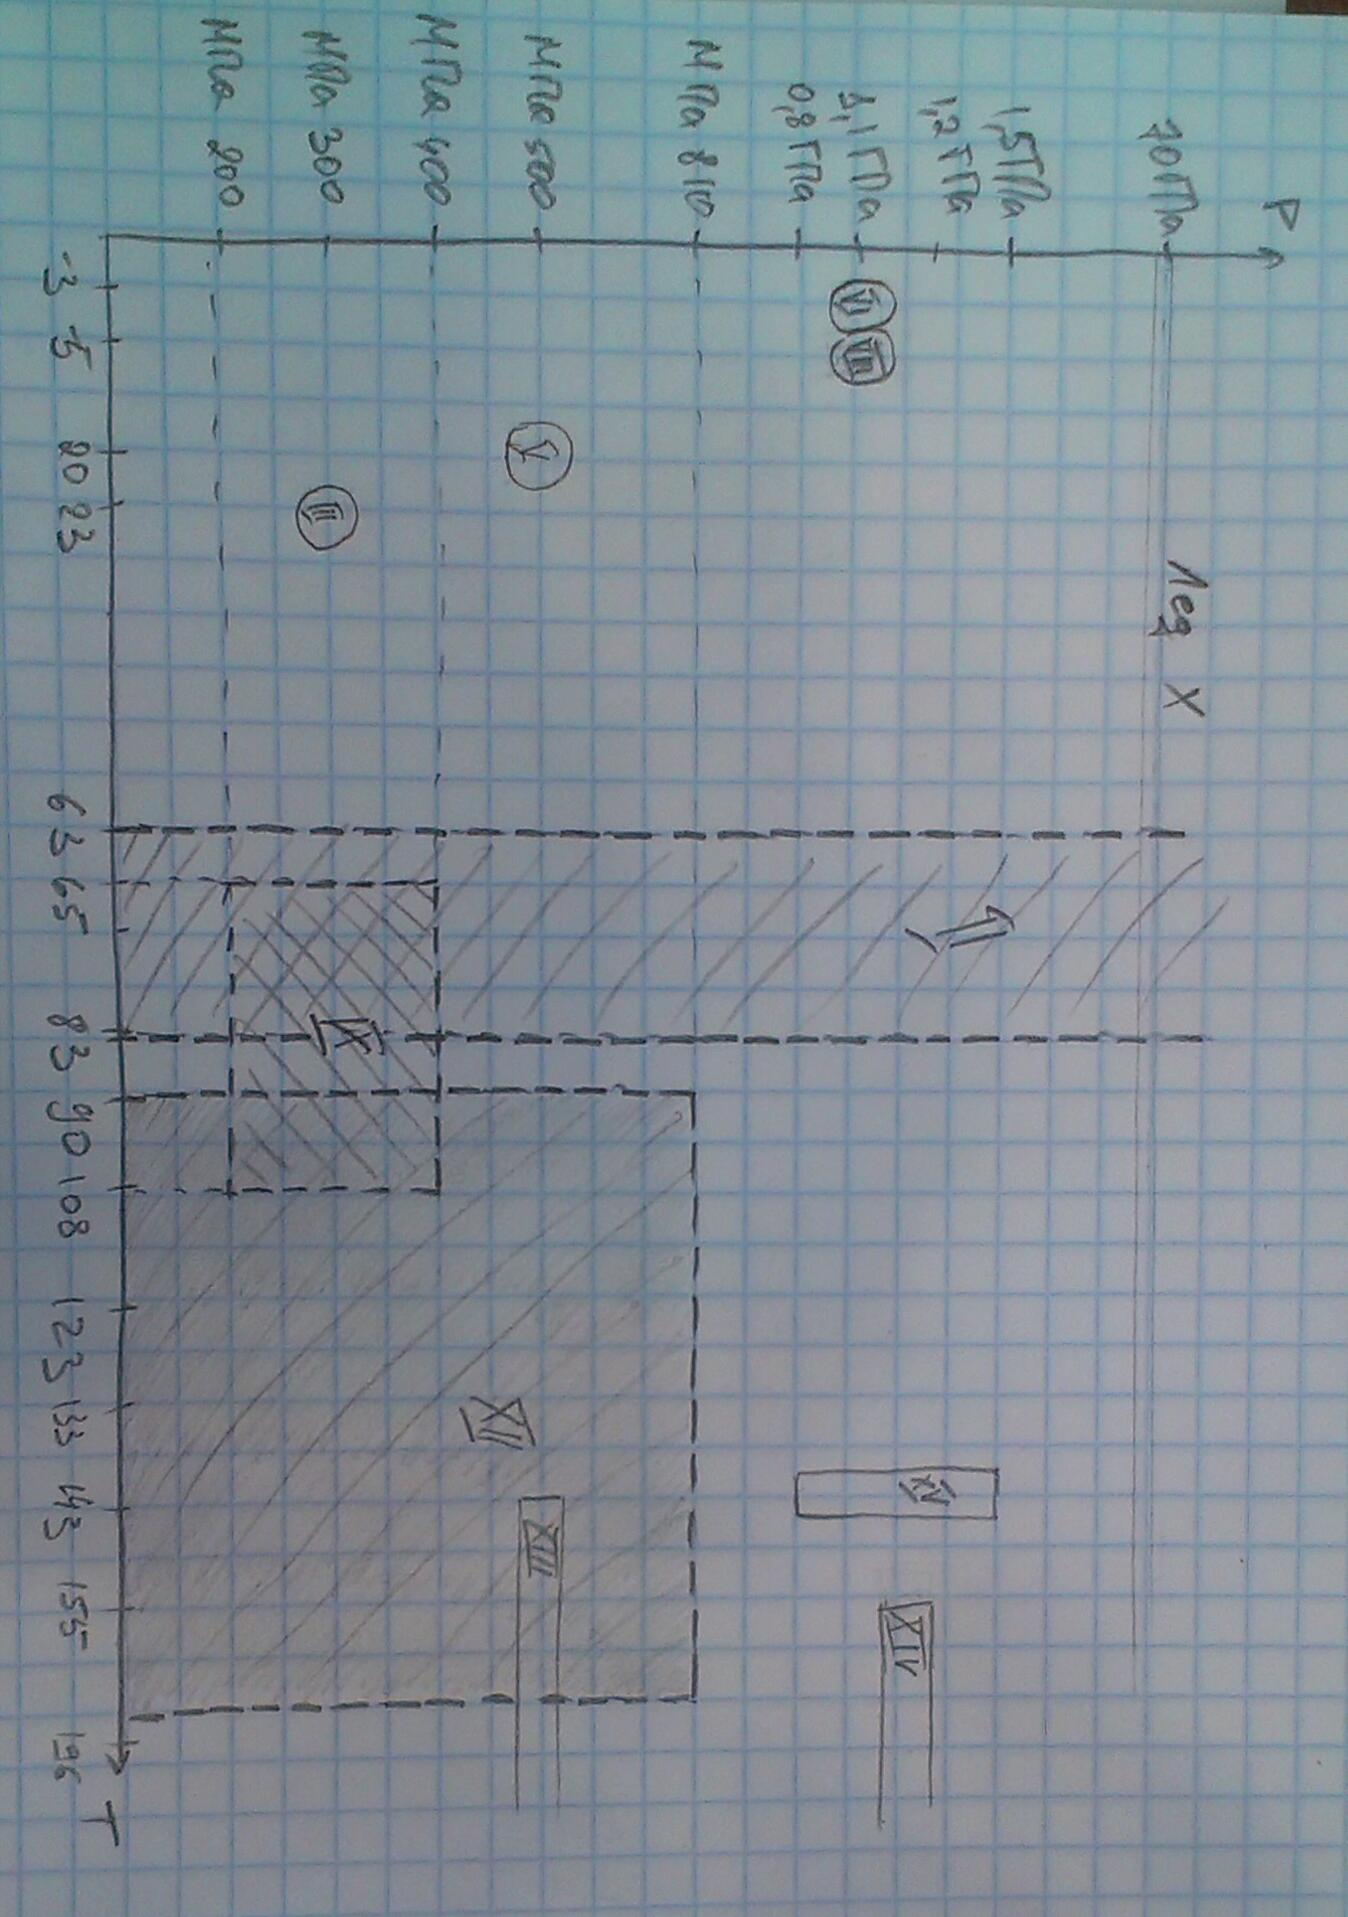 P
10 ГПа
1,5 ГПа
1,2 ГПа
1,1 ГПа
0,8 ГПа
МПа 810
МПа 500
МПа 400
МПа 300
МПа 200
VI
VIII
V
III
Лед X
IX
XII
XIII
XV
XIV
-3
-5
20
23
63
65
83
90
108
123
133
143
155
196
T